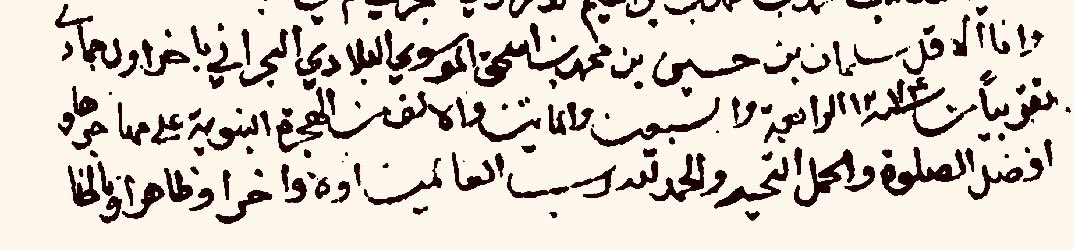 وانا الاقل سلمان بن حسين بن محمد بن اسحق الموسوي البلادي البحراني باخر اول جماد
تقريباً من سنة ١٢٧٤ الرابعة والسبعين والمايتين والالف من الهجرة النبوية على مهاجرها و
افضل الصلوة واكمل التحيه والحمد لله رب العالمين اولا واخرا وظاهرا وباطنا